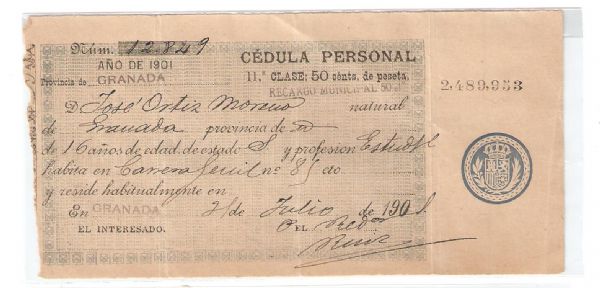 Núm. 12.849
AÑO DE 1901
CÉDULA PERSONAL
Provincia de GRANADA
11.ª CLASE: 50 cénts. de peseta.
RECARGO MUNICIPAL 50
2.489,953
D. José Ortiz Moreno natural
de Granada provincia de id
de 16 años de edad, de estado S y profesión Estudte
habita en Carrera Genil nº 85 cto
y reside habitualmente en
En GRANADA 21 de Julio de 1901.
EL INTERESADO.
EL Recdor
Ruiz